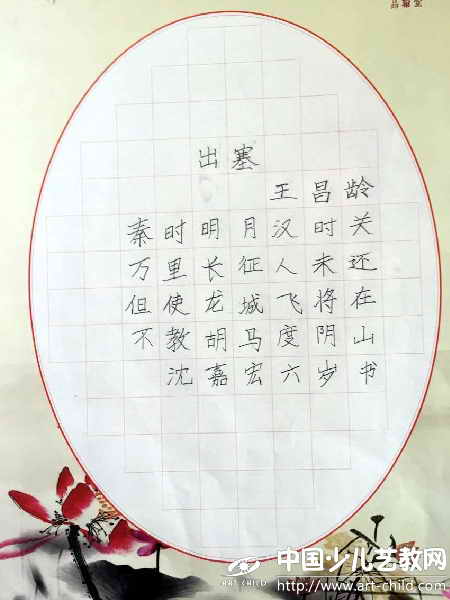 出塞
王昌龄
秦时明月汉时关
万里长征人未还
但使龙城飞将在
不教胡马度阴山
沈嘉宏六岁书
ART CHILD
中国少儿艺教网
http://www.art-child.com